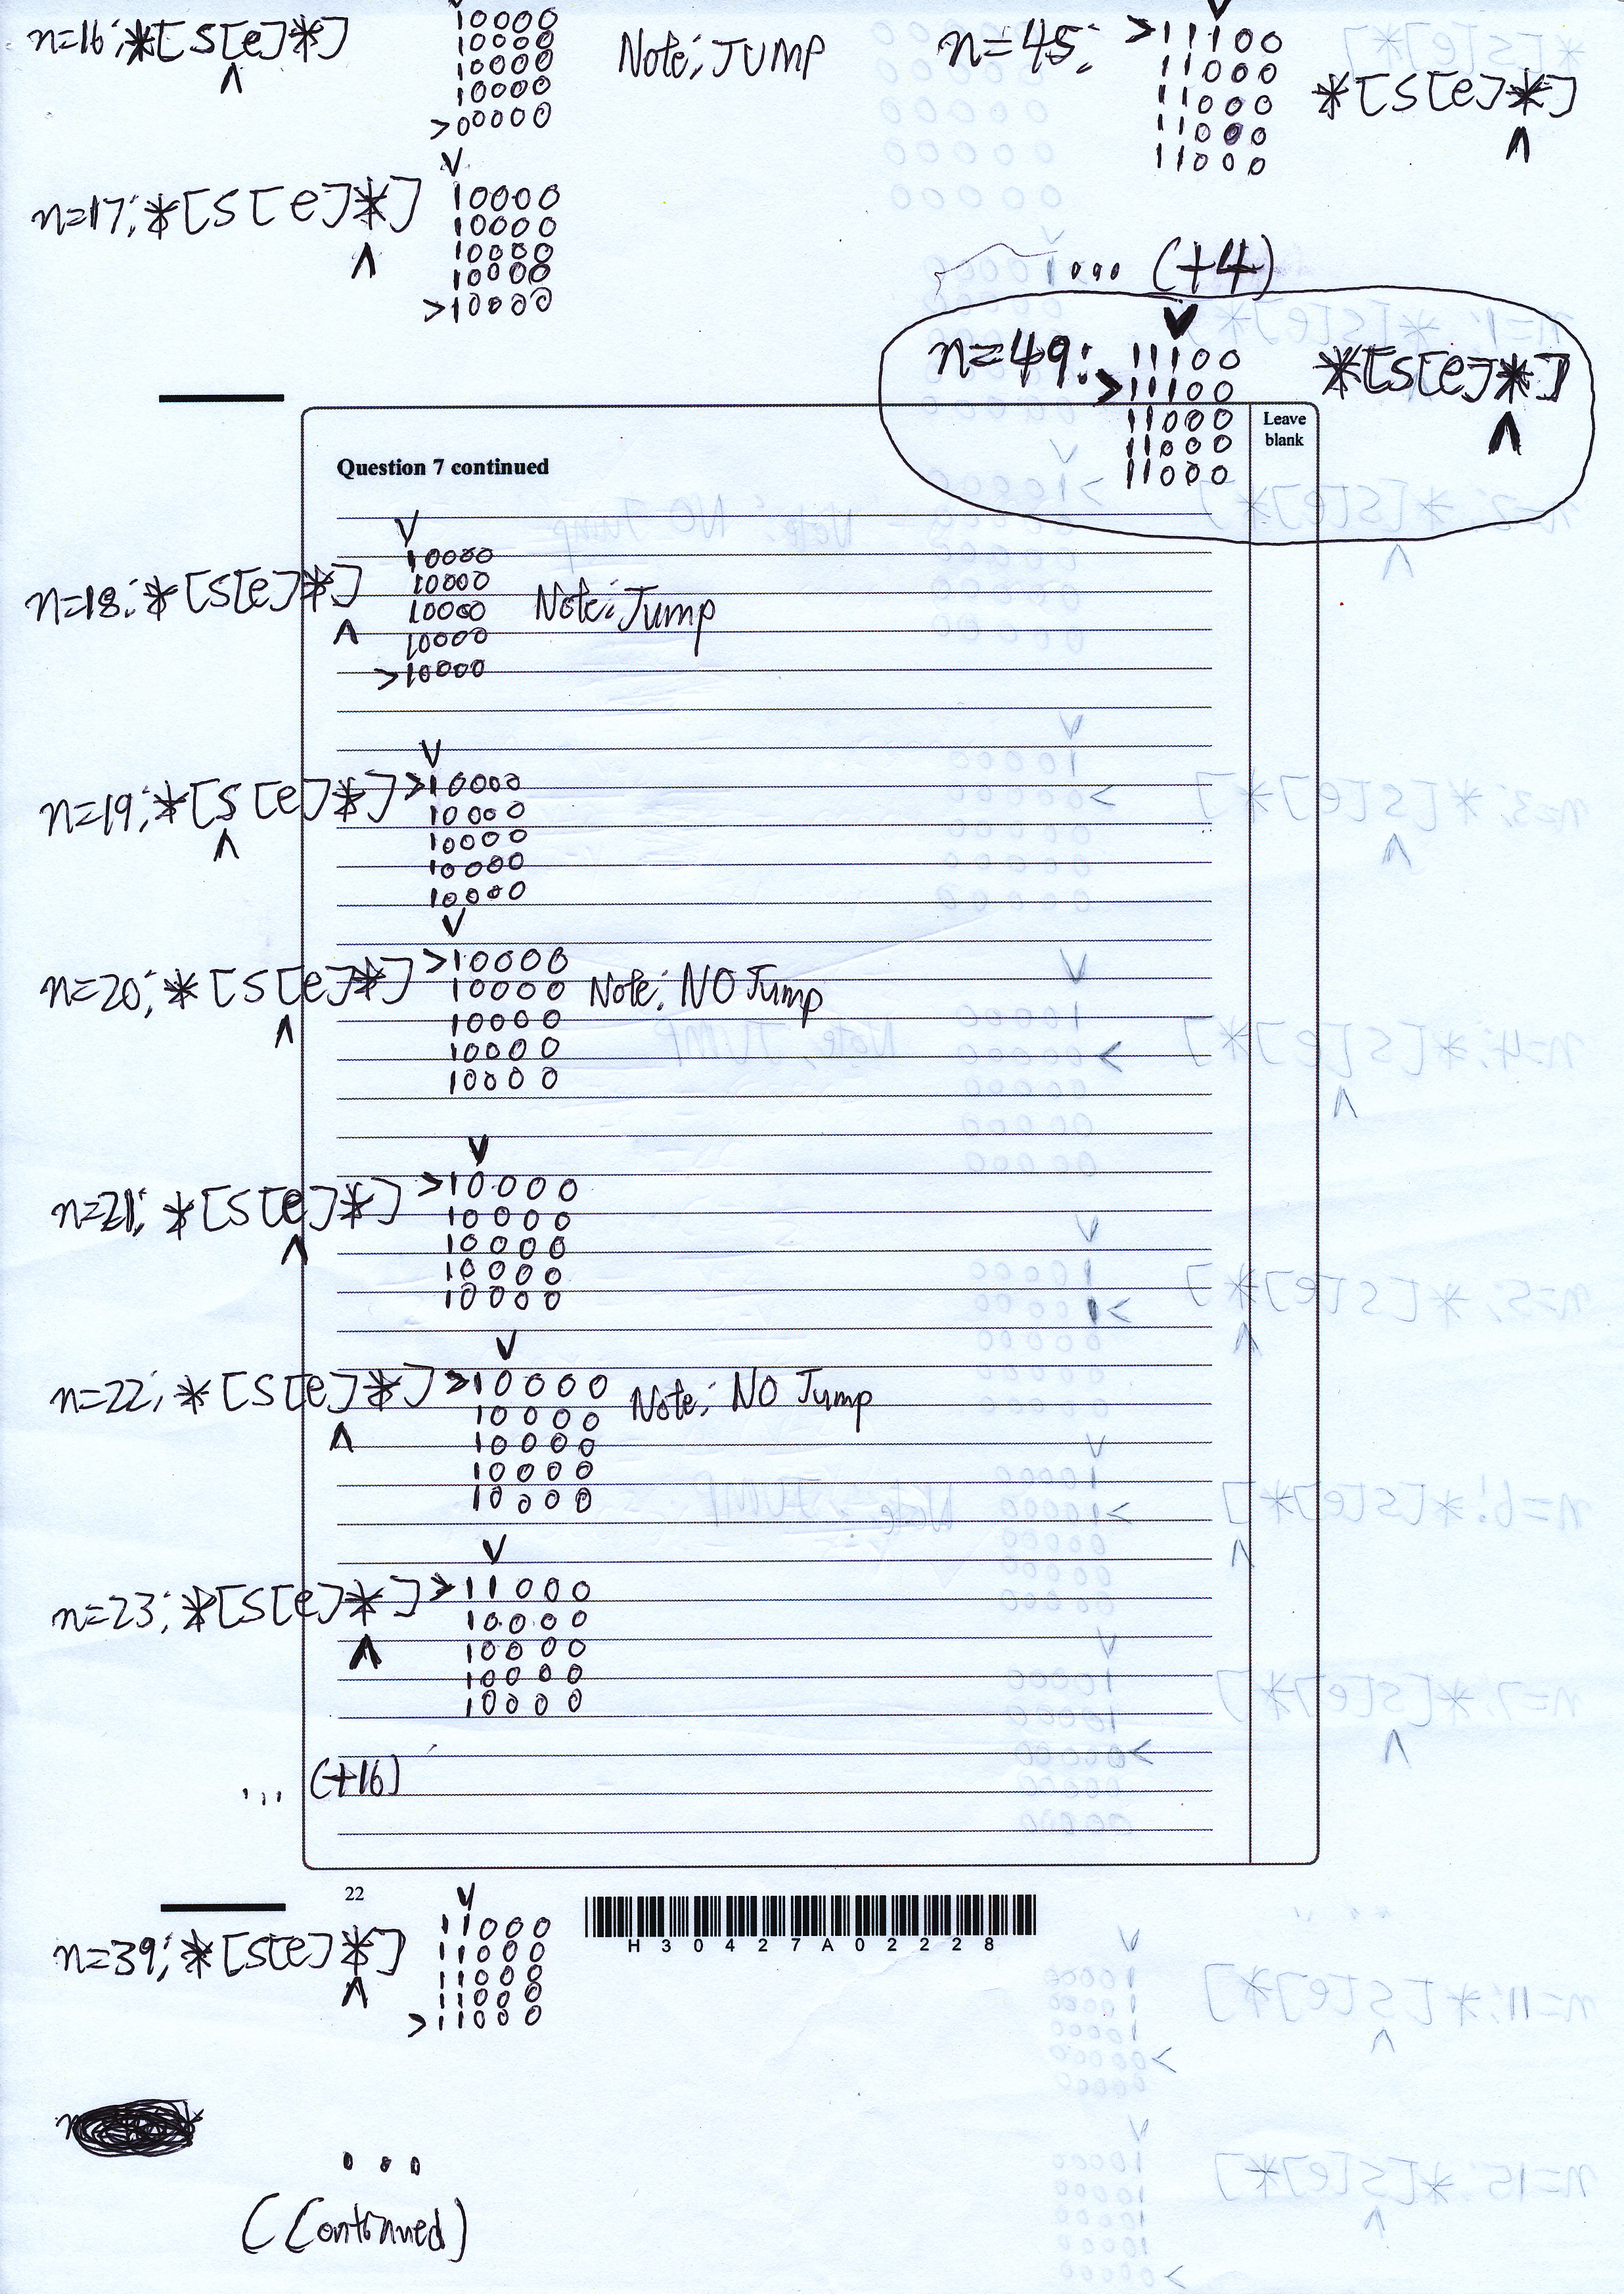 n=16; *[s[e]*]
^
10000
10000
10000
10000
>00000
Note; JUMP
n=17; *[s[e]*]
^
V
10000
10000
10000
10000
>10000
n=45:
V
>11100
11000
11000
11000
11000
*[s[e]*]
^
... (+4)
n=49:
V
11100
>11100
11000
11000
11000
*[s[e]*]
^
Leave
blank
Question 7 continued
n=18: *[s[e]*]
^
V
10000
10000
10000
10000
>10000
Note: Jump
n=19; *[s[e]*]
^
V
>10000
10000
10000
10000
10000
n=20; *[s[e]*]
^
V
>10000
10000
10000
10000
10000
Note: NO Jump
n=21; *[s[e]*]
^
V
>10000
10000
10000
10000
10000
n=22; *[s[e]*]
^
V
>10000
10000
10000
10000
10000
Note: NO Jump
n=23; *[s[e]*]
^
V
>11000
10000
10000
10000
10000
... (+16)
22
n=39; *[s[e]*]
^
V
11000
11000
11000
11000
>11000
H30427A02228
...
(Continued)